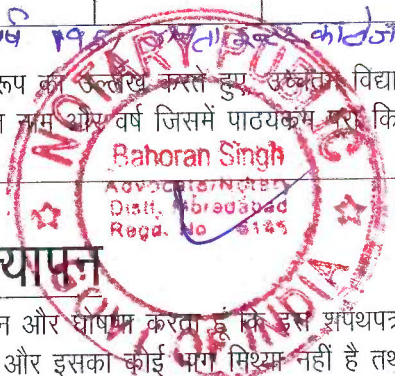 र्ष
रूप का उल्लेख करते हुए, उच्चतम विद्या
नाम और वर्ष जिसमें पाठयकम पूरा कि
NOTARY PUBLIC
Bahoran Singh
Advocate/Notary
Distt. Moradabad
Regd. No 6145
GOVT OF INDIA
यापन
न और घोषणा करता हूं कि इस शपथपत्र
और इसका कोई भाग मिथ्या नहीं है तथ